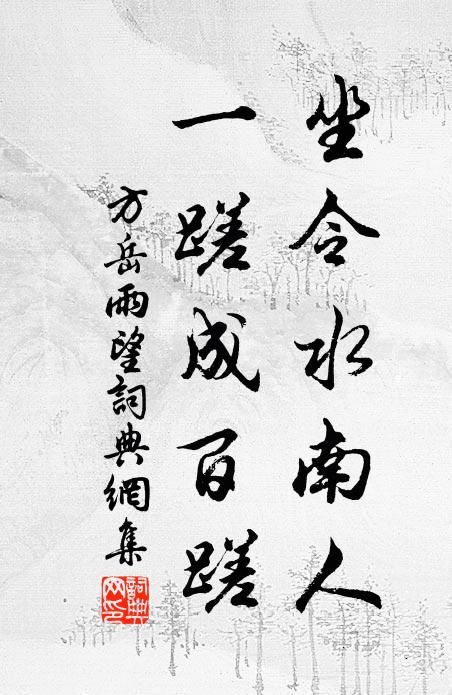 坐令水南人
一蹉成百蹉
方岳雨望詞典網集
詞典網印